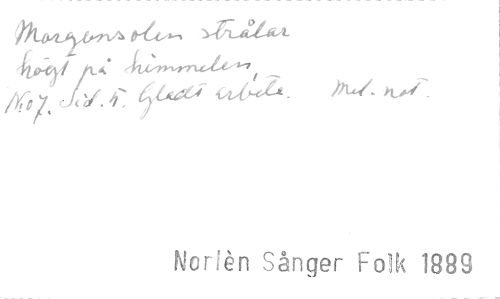 Morgonsolen strålar
högt på himmelen,
No 7. Sid. 5. Gladt arbete. Mel. not.
Norlèn Sånger Folk 1889